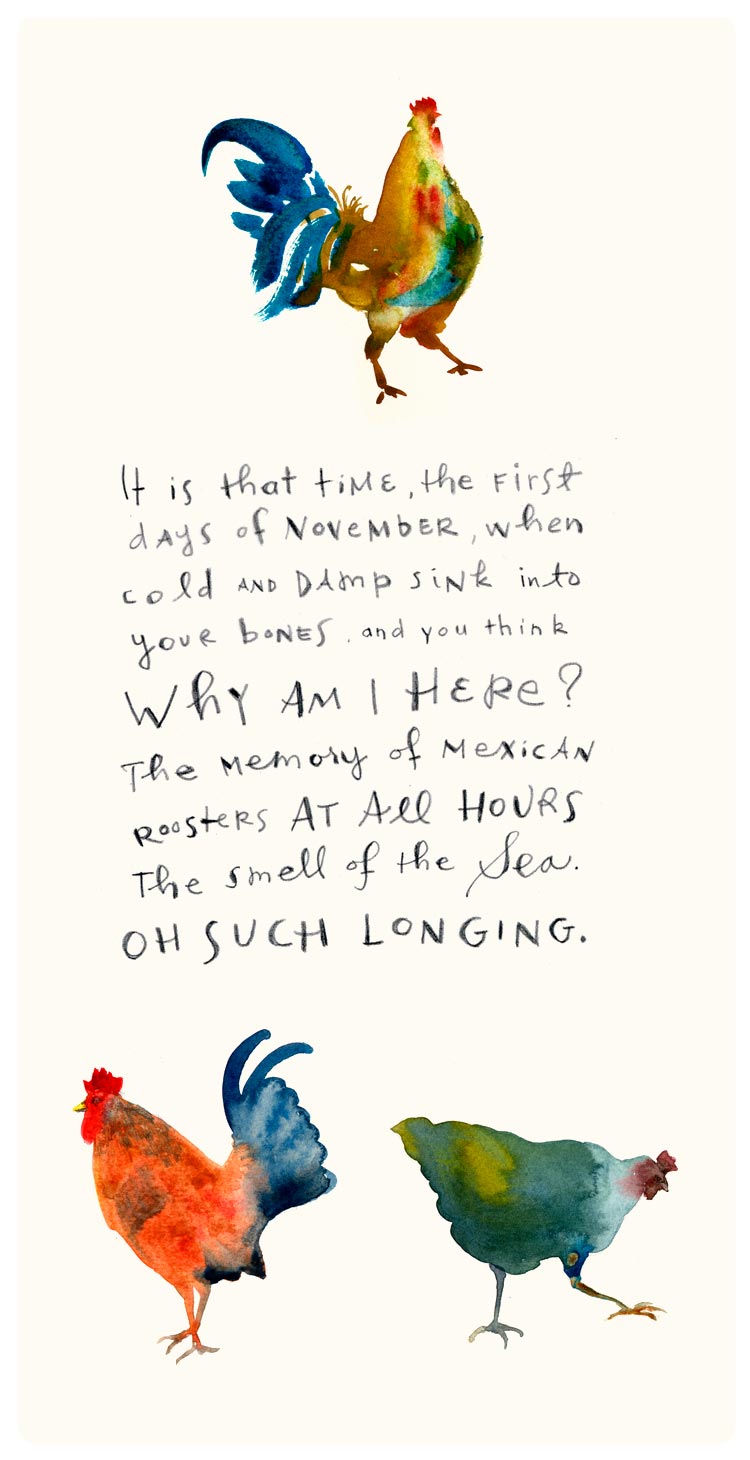 It is that TIME, the First
dAys of NoVeMbER, when
cold AND DAmp sink into
your bones. and you think
WhY AM I HERe?
The Memory of MexicAN
RoosteRs AT All HOURS
The smell of the Sea.
OH SUCH LONGING.